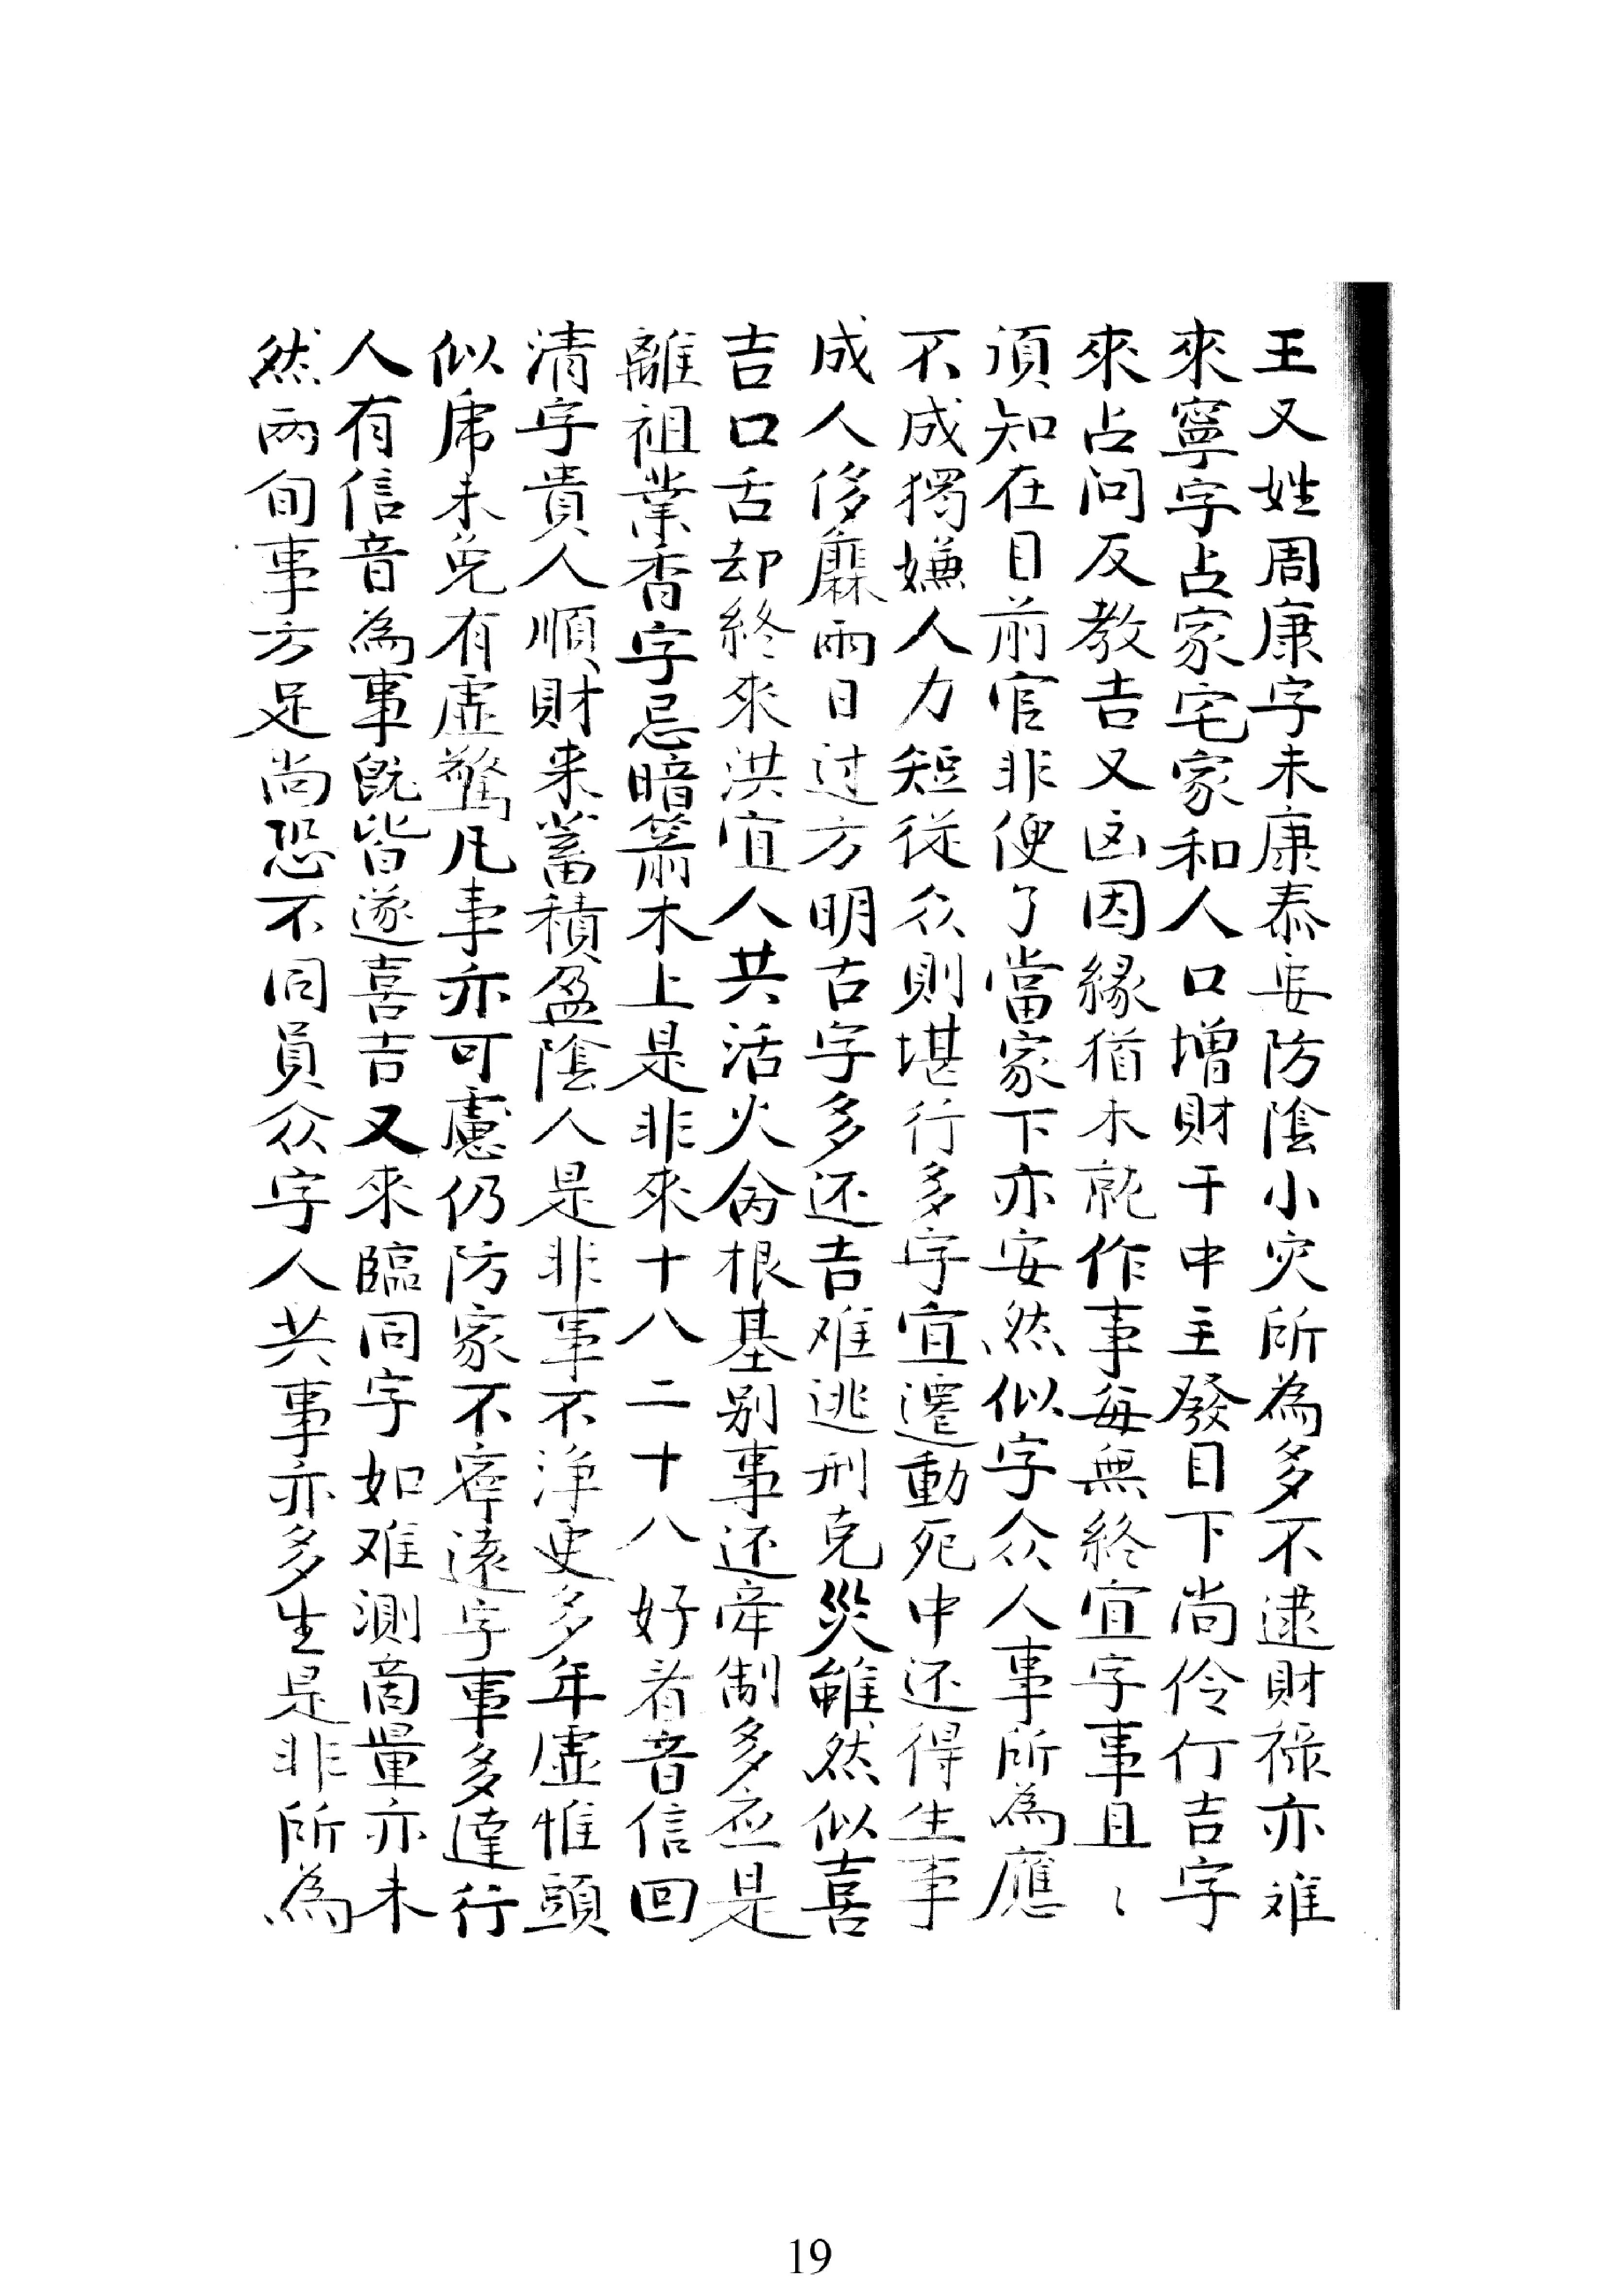 王又姓周康字未康泰妄防陰小灾所為多不逮財祿亦难
來寧字占家宅家和人口增財干中主發目下尚伶仃吉字
來占问反教吉又凶因緣猶未就作事每無終宜字事且〻
湏知在目前官非便了當家下亦安然似字众人事所為應
不成獨嫌人力短從众則堪行多字宜遷動死中还得生事
成人侈靡兩日过方明古字多还吉难逃刑克災雖然似喜
吉口舌却終來洪宜人共活火㑹根基别事还牵制多应是
離祖業香字忌暗箭木上是非來十八二十八好着音信回
清字貴人順財来蓄積盈陰人是非事不浄更多年虛惟頭
似席未免有虛驚凡事亦可慮仍防家不寧遠字事多達行
人有信音為事既皆遂喜吉又來臨同字如难测商量亦未
然兩旬事方足尚恐不同員众字人共事亦多生是非所為
19